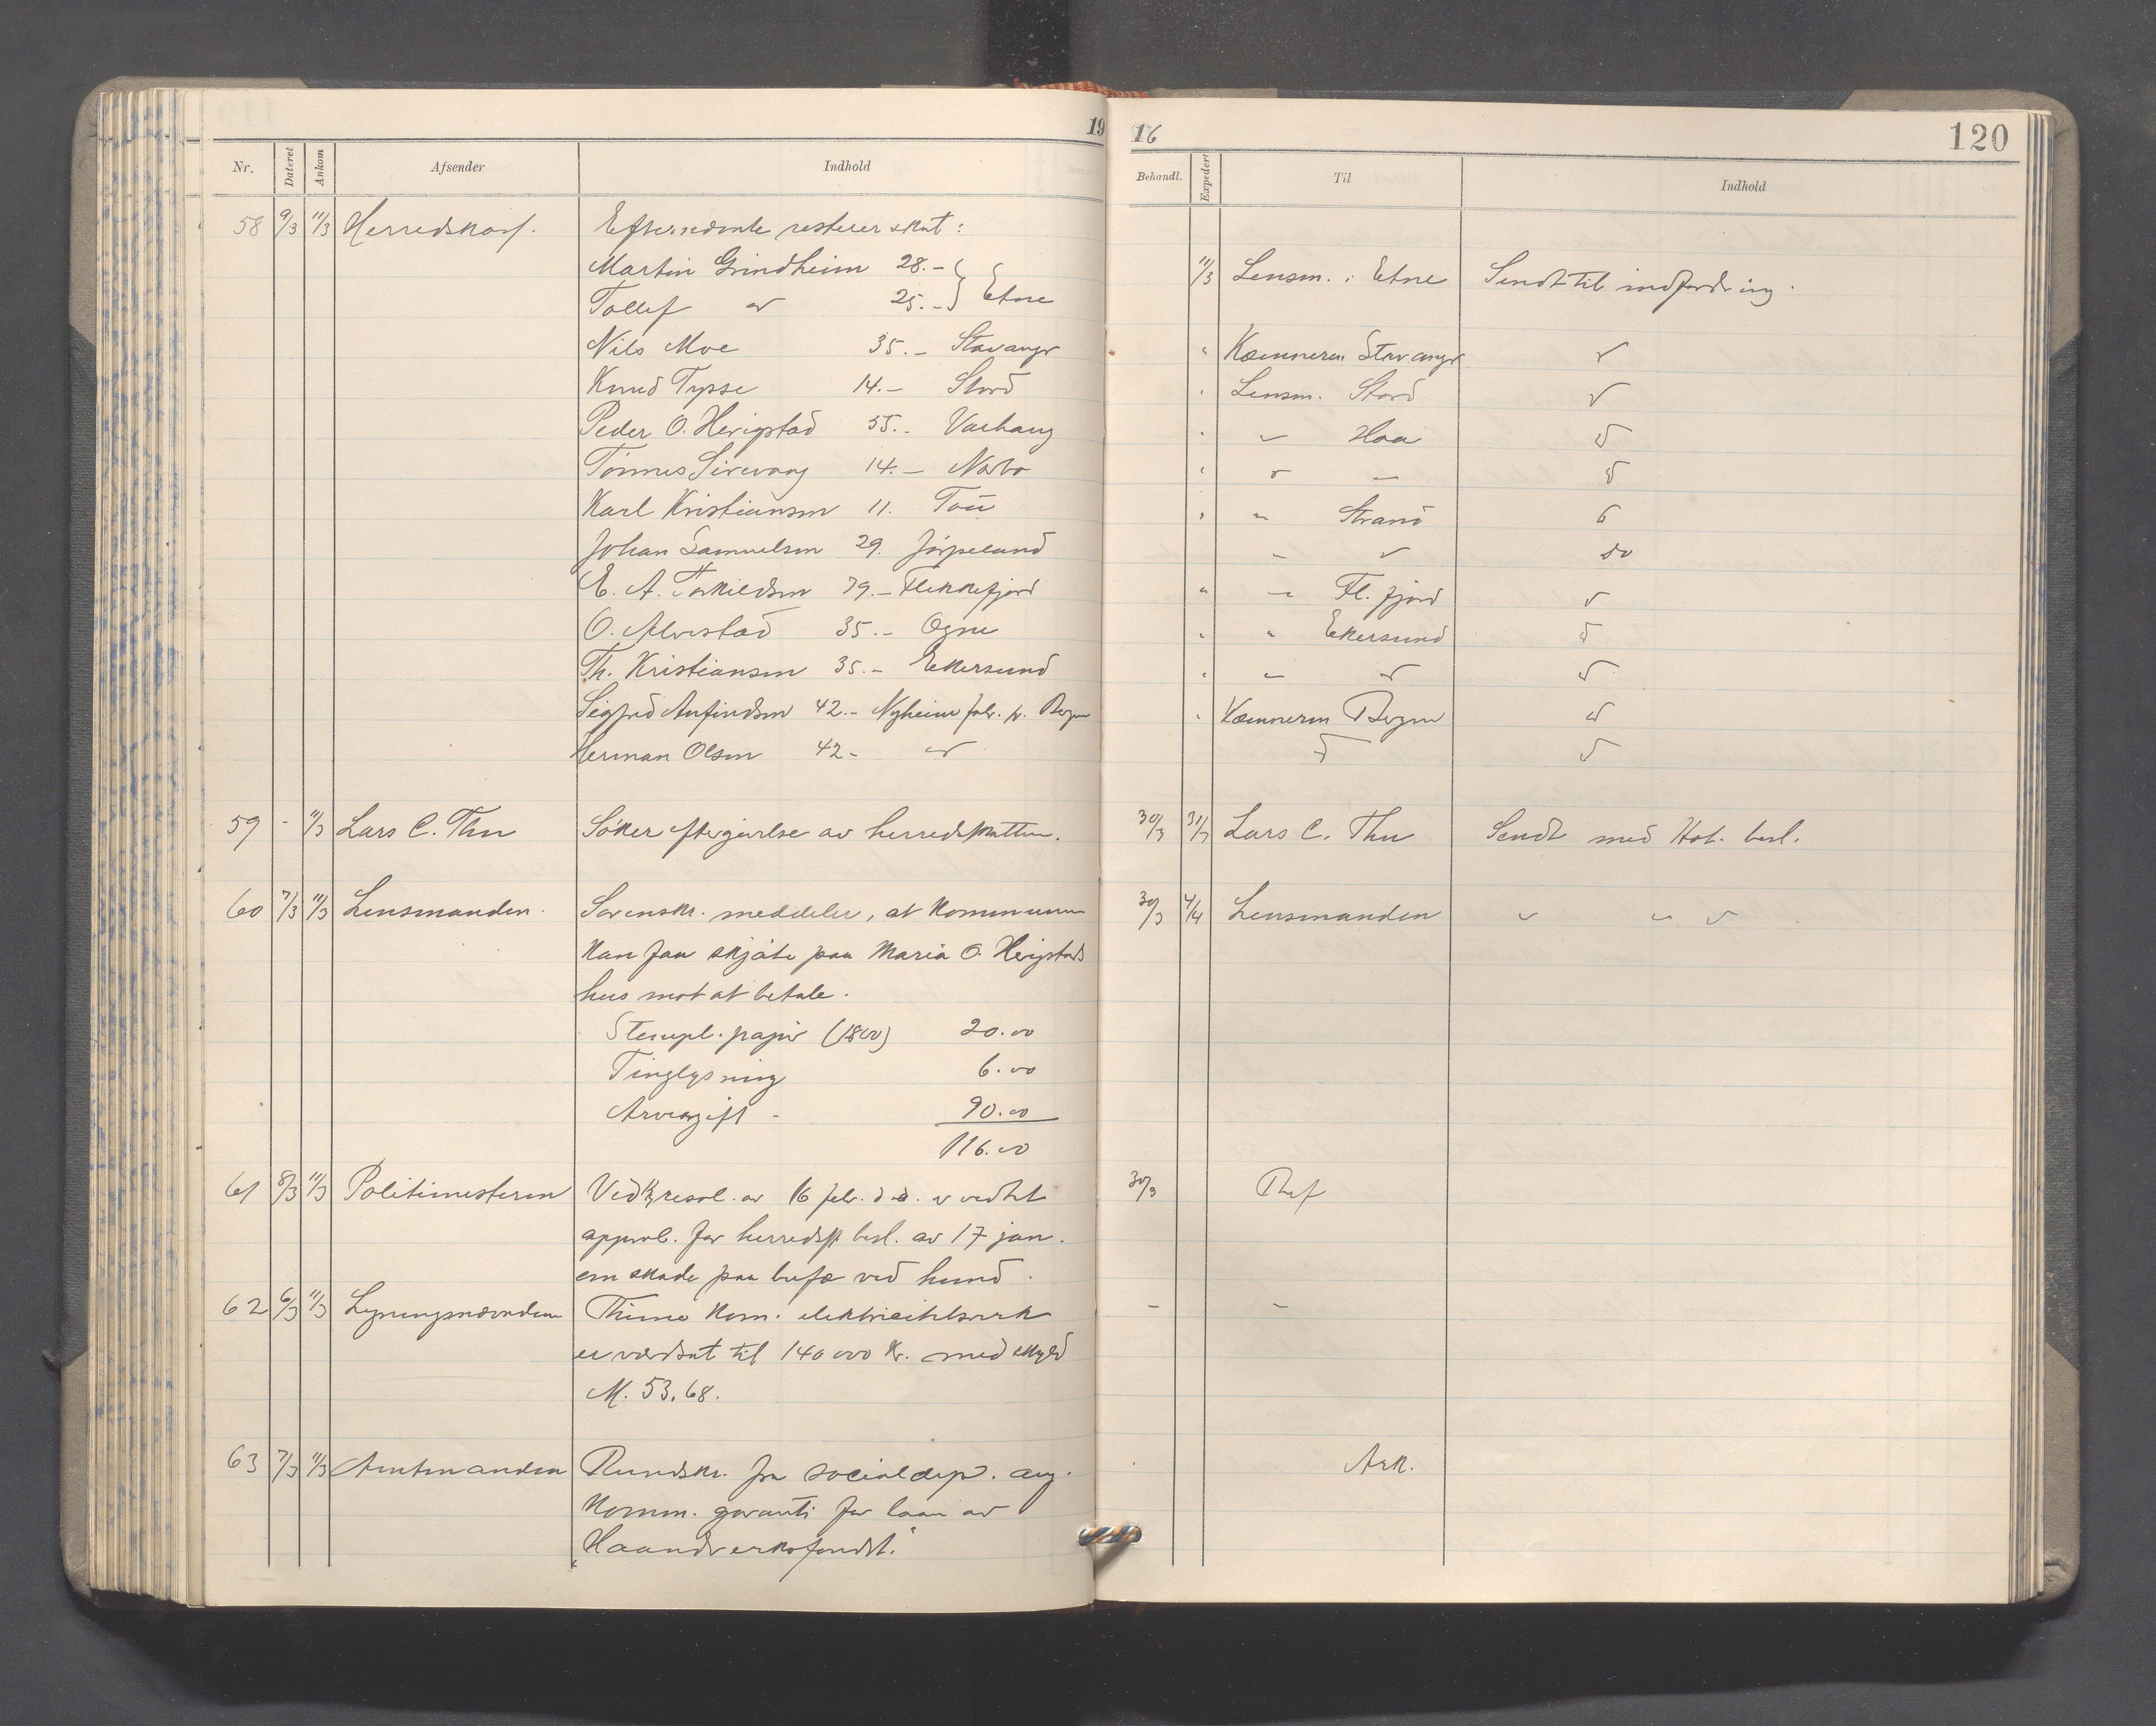 19 16 120
Nr. Dateret Ankom Afsender Indhold Behandl. Expedert Til Indhold
58 9/3 11/3 Herredskas. Efternevnte resterer skat:
Martin Grindheim 28.- } Etne 11/3 Lensm. i Etne Sendt til indfordring.
Tollef " 25.-
Nils Moe 35.- Stavanger " Kæmneren Stavanger "
Knud Tysse 14.- Stord " Lensm. Stord "
Peder O. Herigstad 55.- Varhaug " " Haa "
Tønnes Sirevaag 14.- Nærbø " " - "
Karl Kristiansen 11. Tau " " Strand "
Johan Samuelsen 29. Jørpeland " " "
E. A. Torkildsen 79.- Flekkefjord " " Fl. fjord "
O. Alvestad 35.- Ogne " " Ekersund "
Th. Kristiansen 35.- Ekersund " " " "
Sigfred Anfindsen 42.- Nyheim fabr. pr. Bergen " Kæmneren Bergen "
Herman Olsen 42- " " "
59 - 11/3 Lars C. Thu Søker eftergivelse av herredskatten. 30/3 31/3 Lars C. Thu Sendt med Hst. besl.
60 7/3 11/3 Lensmanden. Sorenskr. meddeler, at kommunen 30/3 4/4 Lensmanden " " "
kan faa skjøte paa Maria O. Herigstads
hus mot at betale.
Stempl. papir (1800) 20.00
Tinglysning 6.00
Arveavgift - 90.00
116.00
61 8/3 11/3 Politimesteren Ved kgl resol. av 16 febr. d. a. er vedtæt 30/3 Ref
approb. for herredsst besl. av 17 jan.
om skade paa bufæ ved hund.
62 6/3 11/3 Ligningsnævnden Thime kom. elektricitetsverk - -
er værdsat til 140000 kr. med skyld
M. 53.68.
63 7/3 11/3 Amtmanden Rundskr. fra socialdep. ang. Ark.
komm. garanti for laan av
"Haandverksfondet."